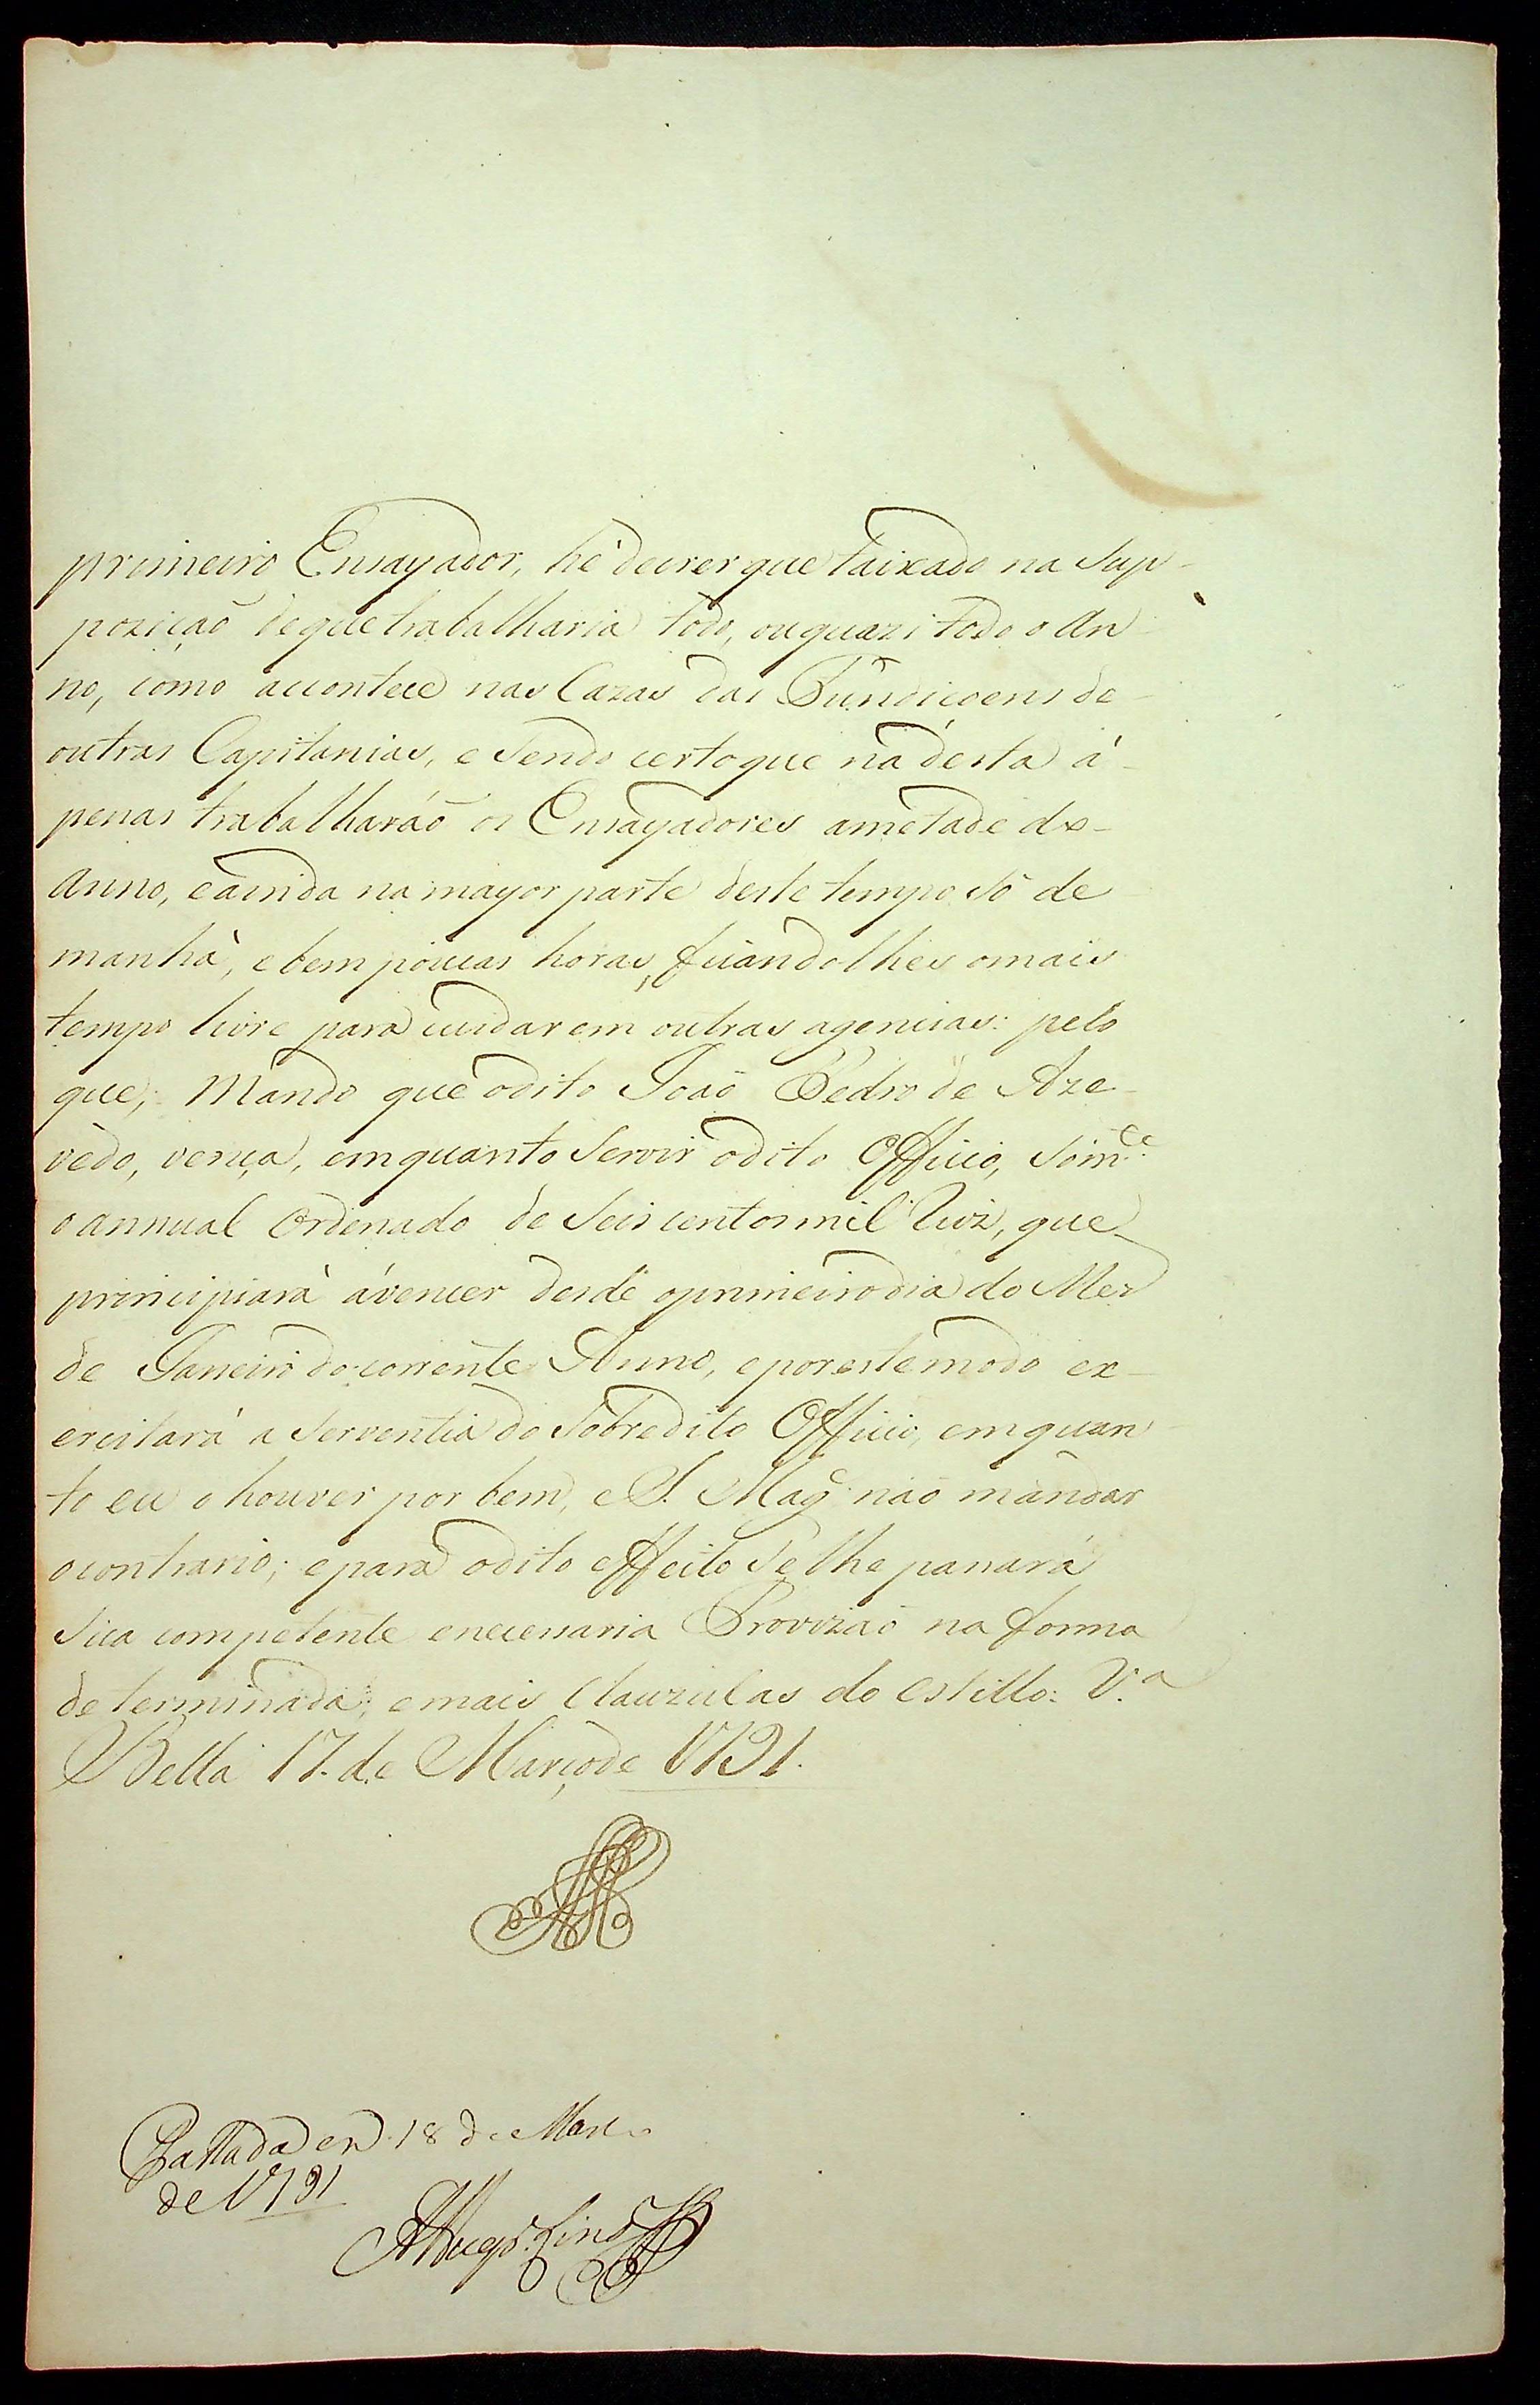 primeiro Ensayador, hé decrer que taixado na Sup-
pozição deque trabalharia todo, ouquazi todo o An
no, como acontece nas Cazas das Fundicoens de
outras Capitanias, e Sendo certo que na desta á-
penas trabalharáõ os Ensayadores ametade do
Anno, eainda na mayor parte deste tempo só de
manhã, ebem poucas horas, ficandolhes omais
tempo livre para cuidar em outras agencias: pelo
que; Mando que odito João Pedro de Aze-
vedo, vença, emquanto Servir odito Officio, Sóm.te
o annual Ordenado de Seis centos mil Reis, que
principiará ávencer desde oprimeiro dia do Mez
de Janeiro do corrente Anno, eporestemodo ex-
ercitará a Serventia do Sobredito Officio, emquan
to eu o houver por bem, e S. Mag.e não mandar
ocontrario; epara odito effeito Selhe passará
Sua competente enecessaria Provizão na forma
determinada; emais Clauzulas do estillo: V.a
Bella 17. de Março de 1791.
Passada em 18 de Março
de 1791